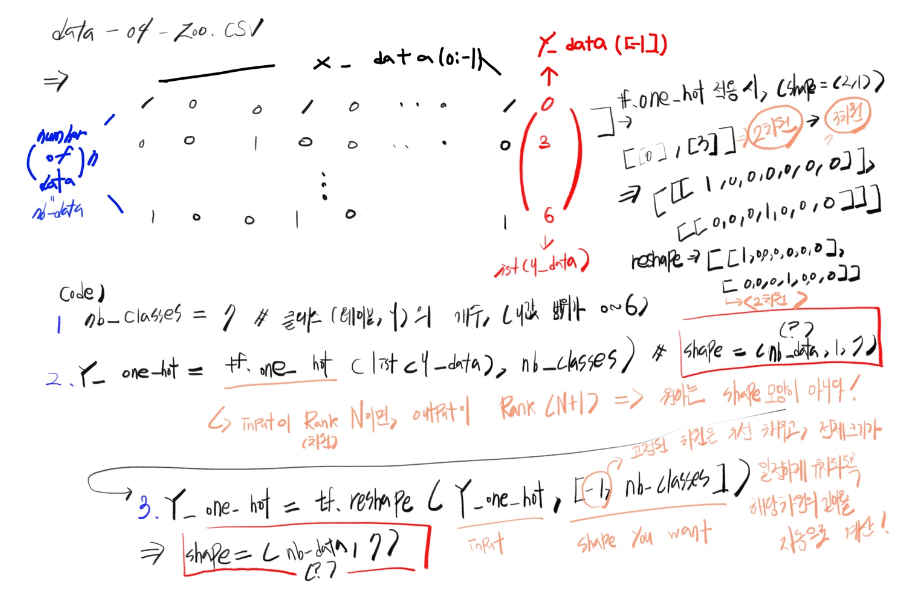 data-04-zoo.csv
⇒
x_ data(0:-1)
Y_ data ([-1])
1 0 0 1 0 0 ... 1 0
0 0 1 0 0 ... 0 3
1 0 0 1 0 1 6
number
of
data
n
nb-data
list(y_data)
tf.one_hot 적용 시, (shape = (2,1))
[[0], [3]] → 2차원 → 3차원
⇒ [[[1,0,0,0,0,0,0]],
[[0,0,0,1,0,0,0]]]
reshape → [[1,0,0,0,0,0,0],
[0,0,0,1,0,0,0]]
↳ <2차원>
Code)
1 nb_classes = 7 # 클래스 (레이블, Y)의 개수, (y값 범위가 0~6)
2. Y_ one_hot = tf. one_ hot (list(y_data), nb_classes) # shape = (nb_data, 1, 7)
(?)
↳ input이 Rank N이면, output이 Rank (N+1) => 원하는 shape 모양이 아니다!
(차원)
3. Y_ one_ hot = tf. reshape ( Y_one_hot, [-1, nb-classes])
고정된 차원은 우선 채우고, 전체크기가
일정하게 유지되도록
해당차원의 길이를
자동으로 계산!
input
shape You want
⇒ shape = (nb-data, 7)
(?)